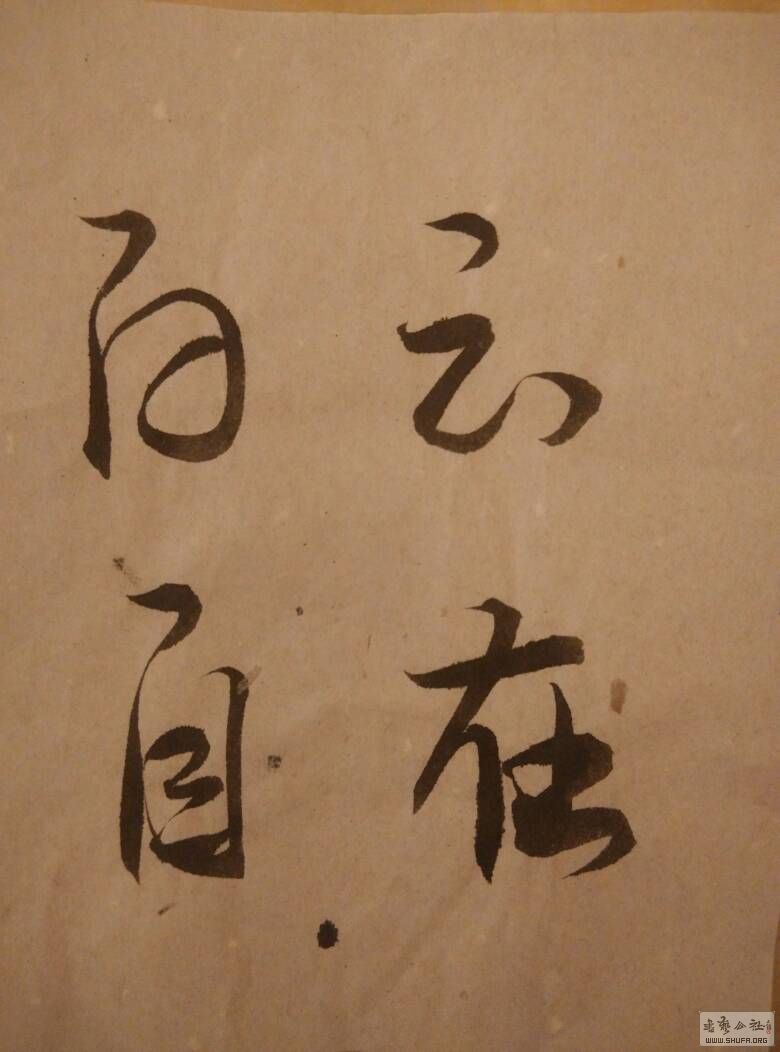 云在
白自
書藝公社
WWW.SHUFA.ORG